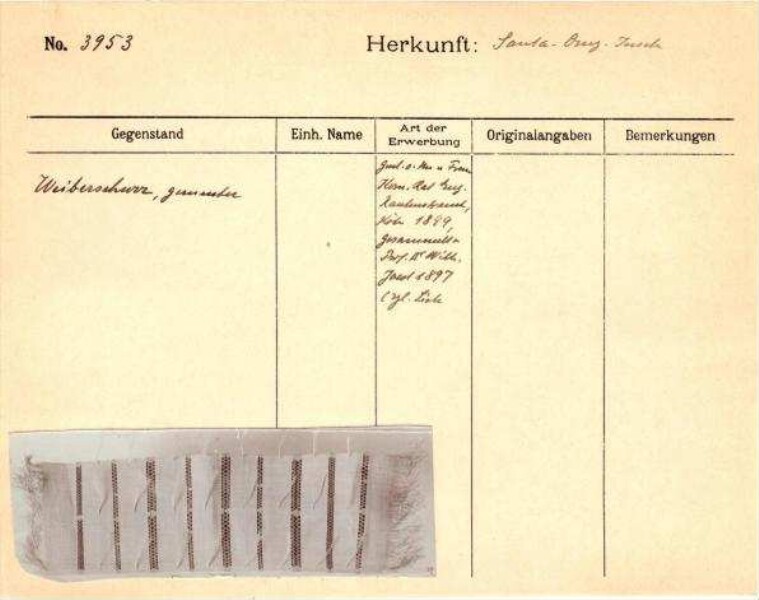 No. 3953
Herkunft: Santa-Cruz-Inseln
Gegenstand
Einh. Name
Art der Erwerbung
Originalangaben
Bemerkungen
Weiberschurz, gemustert
Gesch. v. Frau
Kom. Rat Eug.
Rautenstrauch,
Köln 1899,
gesammelt v.
Prof. Dr Wilh.
Joest 1897
(vgl. Liste